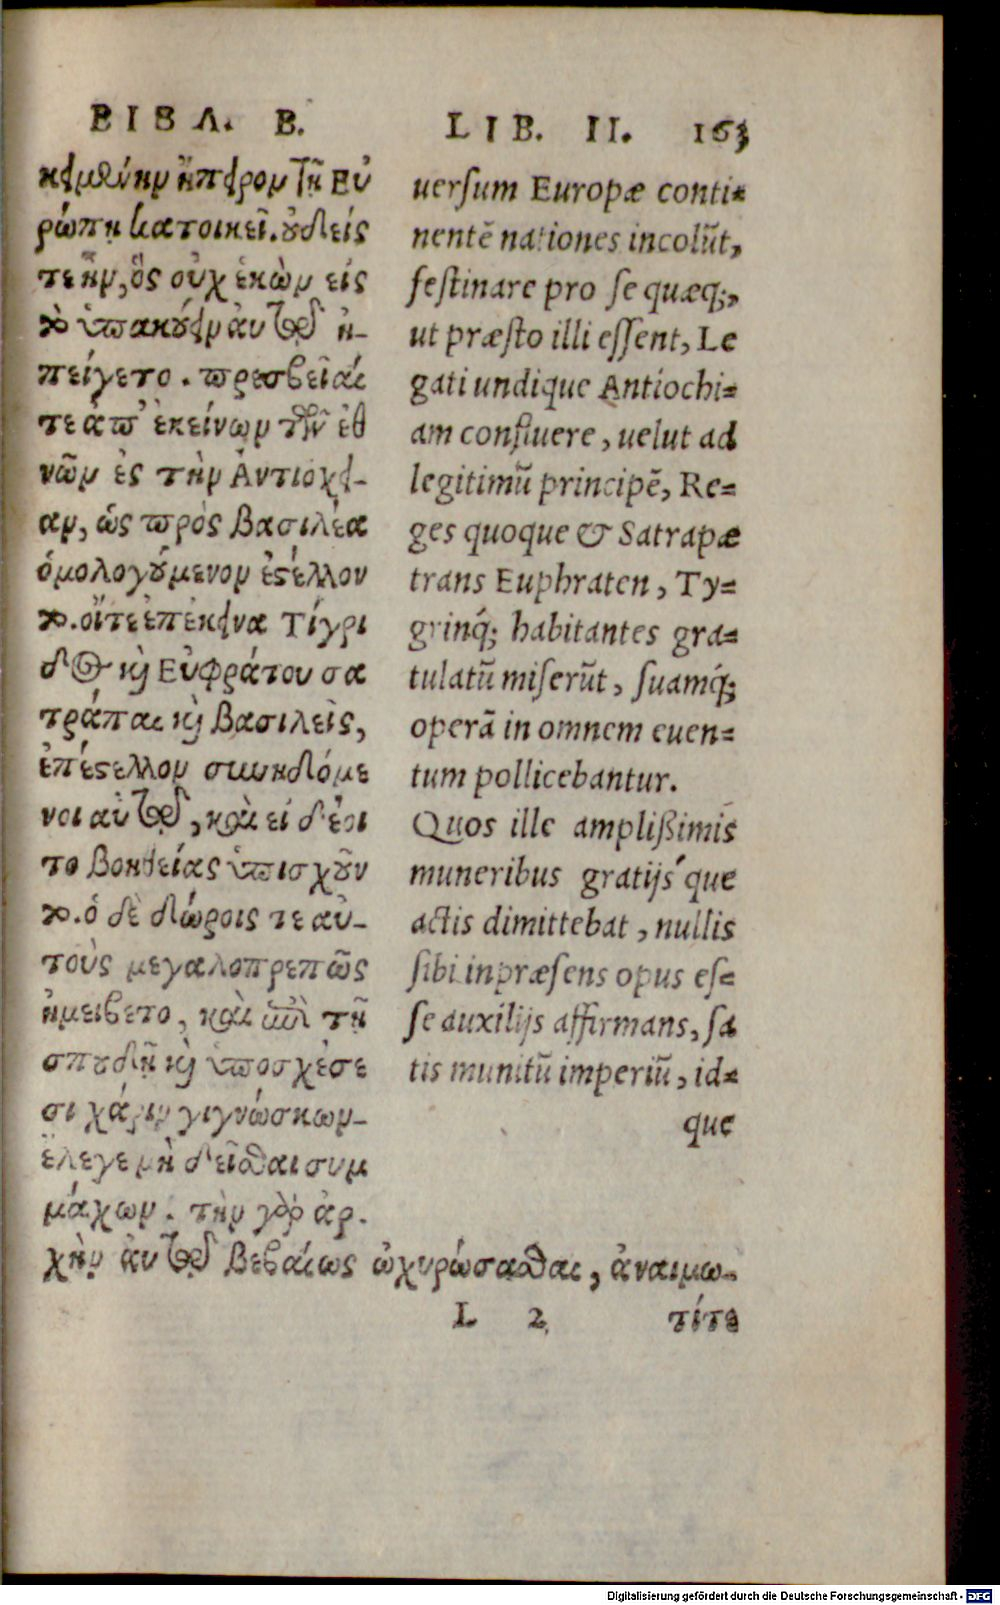 ΒΙΒΛ. Β.
κειμένην ἤπειρον τῇ Εὐ
ρώπῃ κατοικεῖ. οὐδείς
τε ἦν, ὃς οὐχ ἑκὼν εἰς
τὸ ὑπακούειν αὐτῷ ἠ-
πείγετο. πρεσβεῖαί
τε ἀπ' ἐκείνων τῶν ἐθ
νῶν ἐς τὴν Ἀντιόχει-
αν, ὡς πρὸς βασιλέα
ὁμολογούμενον ἐστέλλον
το. οἵτε ἐπέκεινα Τίγρι
δος καὶ Εὐφράτου σα
τράπαι καὶ βασιλεῖς,
ἐπέστελλον συνηδόμε
νοι αὐτῷ, καὶ εἰ δέοι
το βοηθείας ὑπισχνοῦν
το. ὁ δὲ δώροις τε αὐ-
τοὺς μεγαλοπρεπῶς
ἠμείβετο, καὶ ἐπὶ τῇ
σπουδῇ καὶ ὑποσχέσε
σι χάριν γιγνώσκων-
ἔλεγε μὴ δεῖσθαι συμ
μάχων. τὴν γὰρ ἀρ-
χὴν αὐτῷ βεβαίως ὠχυρώσασθαι, ἀναιμω-
LIB. II. 163
uersum Europæ conti=
nentē nationes incolūt,
festinare pro se quæq;,
ut præsto illi essent, Le
gati undique Antiochi=
am confluere, uelut ad
legitimū principē, Re=
ges quoque & Satrapæ
trans Euphraten, Ty=
grinq́; habitantes gra=
tulatū miserūt, suamq́;
operā in omnem euen=
tum pollicebantur.
Quos ille amplißimis
muneribus gratijs´que
actis dimittebat, nullis
sibi inpræsens opus es=
se auxilijs affirmans, sa
tis munitū imperiū, id=
que
L 2 τίτε
Digitalisierung gefördert durch die Deutsche Forschungsgemeinschaft - DFG